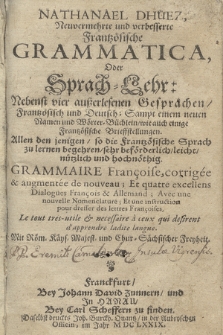 NATHANAEL DHUEZ,
Newvermehrte und verbesserte
Frantzösische
GRAMMATICA,
Oder
Sprach-Lehr:
Nebenst vier außerlesenen Gesprächen/
Frantzösisch und Teutsch: Sampt einem neuen
Frantzösische Brieffstellungen.
Allen den jenigen/ so die Frantzösische Sprach
zu lernen begehren/ sehr beförderlich/ leicht/
nützlich und hochnöthig.
GRAMMAIRE Françoise, corrigée
& augmentée de nouveau; Et quatre excellens
Dialogues François & Allemand; Avec une
nouvelle Nomenclature; Et une instruction
pour dresser des lettres Françoises.
Le tout tres-utile & necessaire à ceux qui desirent
d'apprendre ladite langue.
Mit Röm. Käys. Majest. und Chur-Sächsischer Freyheit.
Franckfurt/
Bey Johann David Zunnern/ und
In HANAU/
Bey Carl Scheffern zu finden.
Im Jahr MDCLXXIX.